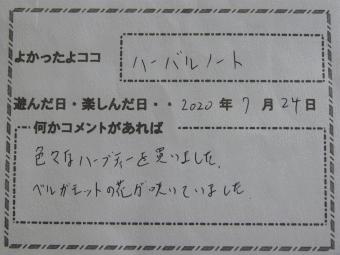 よかったよココ ハーバルノート
遊んだ日・楽しんだ日・・2020年7月24日
何かコメントがあれば
色々なハーブティーを買いました。
ベルガモットの花が咲いていました